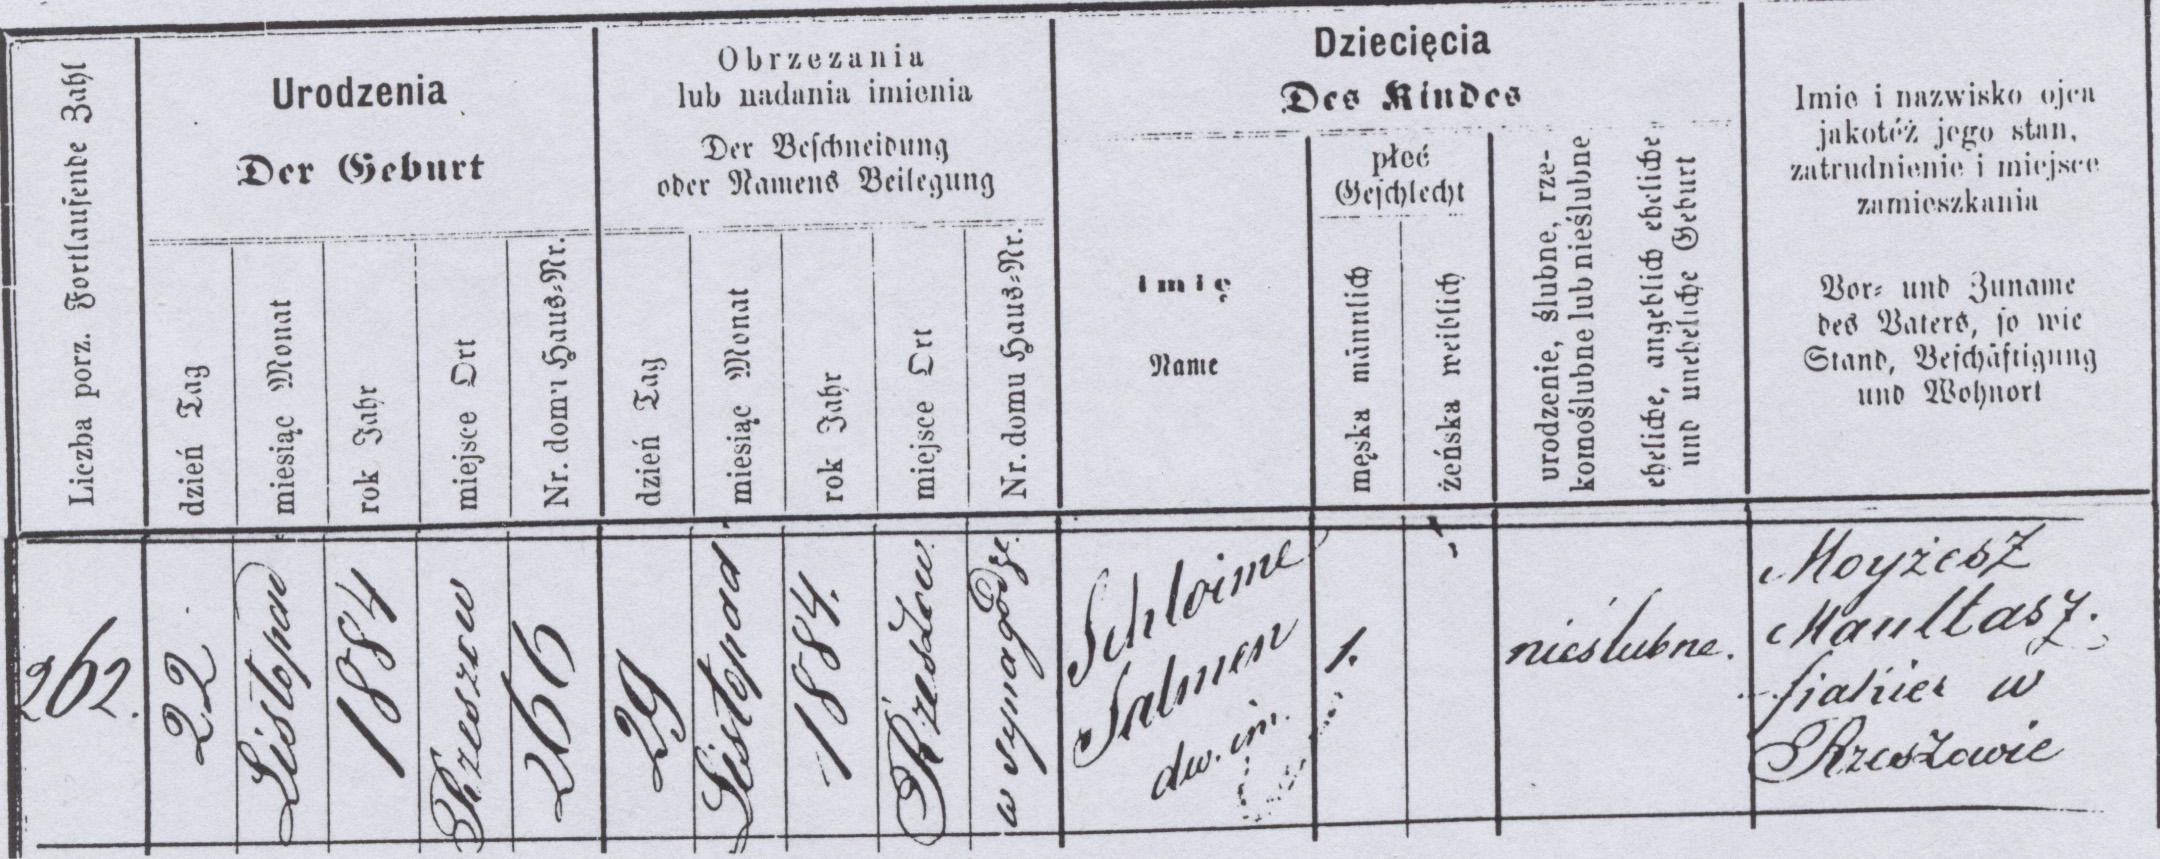 Liczba porz. Fortlaufende Zahl
Urodzenia
Der Geburt
dzień Tag
miesiąc Monat
rok Jahr
miejsce Ort
Nr. domu Haus-Nr.
Obrzezania
lub nadania imienia
Der Beschneidung
oder Namens Beilegung
dzień Tag
miesiąc Monat
rok Jahr
miejsce Ort
Nr. domu Haus-Nr.
Dziecięcia
Des Kindes
imię
Name
płeć
Geschlecht
męska männlich
żeńska weiblich
urodzenie, ślubne, rze-
komoślubne lub nieślubne
eheliche, angeblich eheliche
und uneheliche Geburt
Imie i nazwisko ojca
jakotéż jego stan,
zatrudnienie i miejsce
zamieszkania
Vor- und Zuname
des Vaters, so wie
Stand, Beschäftigung
und Wohnort
262.
22
Listopad
1884
Rzeszow
266
29
Listopad
1884.
Rzeszow.
w synagodze.
Schloime
Salmen
dw. im.
1.
nieślubne.
Moyżesz
Maultasz.
fiakier w
Rzeszowie